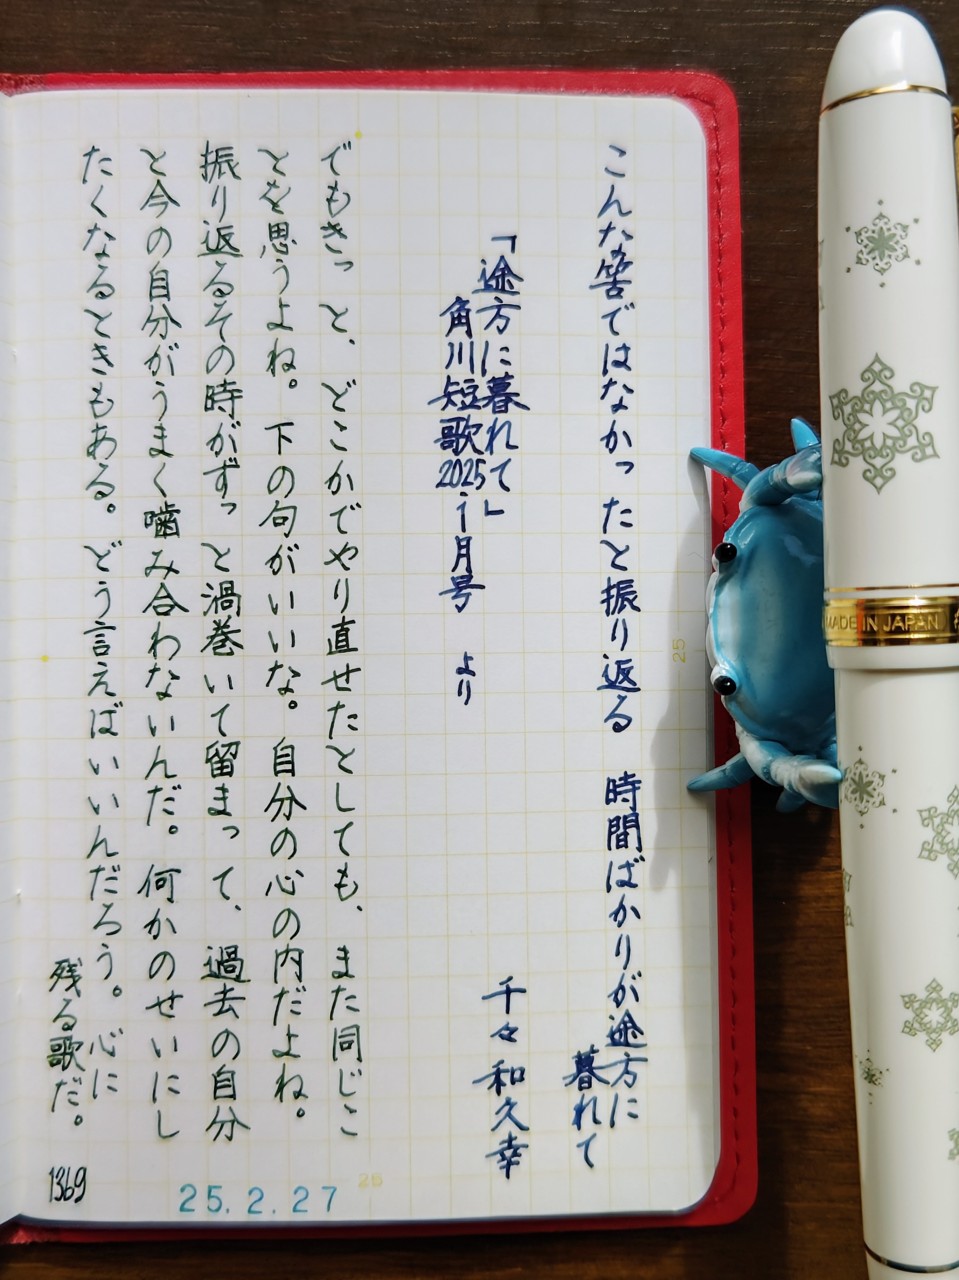 こんな筈ではなかったと振り返る　時間ばかりが途方に
暮れて
「途方に暮れて」　千々和久幸
角川短歌2025年1月号　より
でもきっと、どこかでやり直せたとしても、また同じこ
とを思うよね。下の句がいいな。自分の心の内だよね。
振り返るその時がずっと渦巻いて留まって、過去の自分
と今の自分がうまく噛み合わないんだ。何かのせいにし
たくなるときもある。どう言えばいいんだろう。心に
残る歌だ。
1369
25.2.27
26
25
MADE IN JAPAN